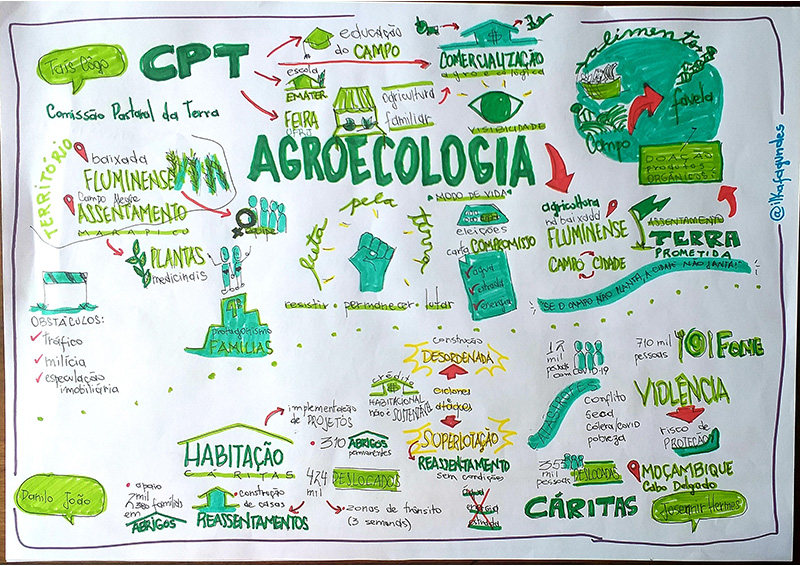 Tais Côgo
CPT
Comissão Pastoral da Terra
educação
do CAMPO
escola
EMATER
FEIRA
UFRJ
agricultura
familiar
COMERCIALIZAÇÃO
agroecológica
VISIBILIDADE
alimentos
favela
Campo
DOAÇÃO
produtos
ORGÂNICOS
@ilhafagundes
TERRITÓRIO
baixada
FLUMINENSE
Campo Alegre
ASSENTAMENTO
MARAPICU
PLANTAS
medicinais
AGROECOLOGIA
MODO DE VIDA
luta pela terra
resistir · permanecer · lutar
eleições
carta COMPROMISSO
água
estrada
energia
agricultura
na baixada
FLUMINENSE
CAMPO CIDADE
ASSENTAMENTO
TERRA
PROMETIDA
SE O CAMPO NÃO PLANTA, A CIDADE NÃO JANTA!
protagonismo
FAMÍLIAS
OBSTÁCULOS:
tráfico
milícia
especulação
imobiliária
construção
DESORDENADA
crédito
HABITACIONAL
não é SUSTENTÁVEL
ciclones
ataques
SUPERLOTAÇÃO
REASSENTAMENTO
sem condições
água
energia
estrada
implementação
de PROJETOS
310 ABRIGOS
permanentes
HABITAÇÃO
CÁRITAS
424
mil
DESLOCADOS
zonas de trânsito
(3 semanas)
Danilo João
apoio
2 mil
famílias
em
ABRIGOS
construção
de casas
REASSENTAMENTOS
mil
pessoas
com COVID-19
710 mil
pessoas
FOME
VIOLÊNCIA
risco de
PROTEÇÃO
conflito
Gead
Cólera/covid
pobreza
mil
pessoas
DESLOCADAS
MOÇAMBIQUE
Cabo Delgado
CÁRITAS
Hermes